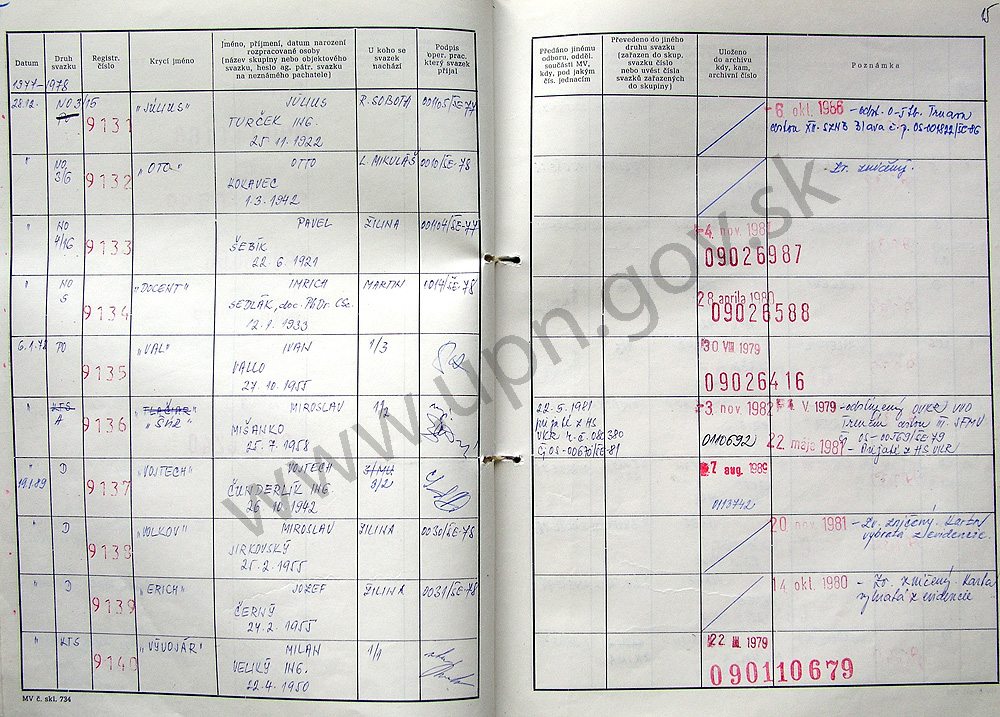 15
Datum
Druh svazku
Registr. číslo
Krycí jméno
Jméno, příjmení, datum narození
rozpracované osoby
(název skupiny nebo objektového
svazku, heslo ag. pátr. svazku
na neznámého pachatele)
U koho se
svazek
nachází
Podpis
oper. prac.
který svazek
přijal
Předáno jinému
odboru, odděl.
součásti MV,
kdy, pod jakým
čís. jednacím
Převedeno do jiného
druhu svazku
(zařazen do skup.
svazku číslo
nebo uvést čísla
svazků zařazených
do skupiny)
Uloženo
do archivu
kdy, kam,
archivní číslo
Poznámka
1977-1978
28.12. NO 3/15 9131 "JÚLIUS" JÚLIUS R. SOBOTA 001105/ŠE-77
TURČEK ING.
25. 11. 1922
-6. okt. 1986
" NO 3/6 9132 "OTO" OTTO L. MIKULÁŠ 0010/ŠE-78
KOKAVEC
1. 3. 1942
Zv. zničený.
" NO 4/16 9133 PAVEL ŽILINA 001104/ŠE-77
ŠEBÍK
22. 6. 1921
-4. nov. 1981
09026987
" NO S 9134 "DOCENT" IMRICH MARTIN 0014/ŠE-78
SEDLÁK, doc. PhDr. CSc.
12. 1. 1933
28 apríla 1980
09026588
PO 9135 "VAL" IVAN 1/3
VALLO
27. 10. 1955
30 VIII 1979
09026416
" KTS A 9136 "TLAČIAR" MIROSLAV 1/2
MIŠANKO
25. 7. 1958
22. 5. 1981
prijaté z HS
-3. nov 1982
0110692
V. 1979
22 mája 1981
Prijaté z HS VKR
D 9137 "VOJTECH" VOJTECH 3/2
ČUNDERLÍK ING.
26. 10. 1942
7 aug. 1989
0113742
" D 9138 "VOLKOV" MIROSLAV ŽILINA 0030/ŠE-78
JIRKOVSKÝ
25. 2. 1955
20 nov. 1981 - Zv. zničený. Karta
vybratá z evidencie.
" D 9139 "ERICH" JOZEF ŽILINA 0031/ŠE-78
ČERNÝ
24. 2. 1955
14 okt. 1980 - Zv. zničený. Karta
vybratá z evidencie
" KTS 9140 "VÝVOJÁR" MILAN 1/1
VELIKÝ ING.
22. 4. 1950
22 III 1979
090110679
MV č. skl. 734
www.upn.gov.sk